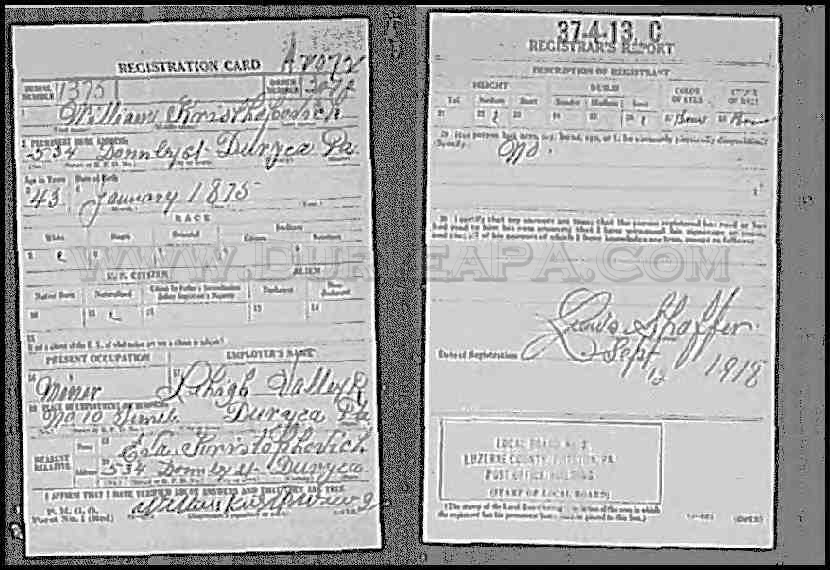 REGISTRATION CARD
SERIAL NUMBER 1375 ORDER NUMBER
William Kristofkevich
2 PERMANENT HOME ADDRESS:
534 Donnby st Duryea Pa.
Age in Years Date of Birth
43 January 1875
RACE
White Negro Oriental Indian
Citizen
U. S. CITIZEN ALIEN
Native Born Naturalized Citizen by Father's Naturalization Before Registrant's Majority Declarant Non-Declarant
10 11 12 13 14
15
If not a citizen of the U. S., of what nation are you a citizen or subject?
PRESENT OCCUPATION EMPLOYER'S NAME
Miner Lehigh Valley
No 10 Duryea Pa
NEAREST RELATIVE Name Eva Kristopkevich
Address 534 Donnby st Duryea
I AFFIRM THAT I HAVE VERIFIED ABOVE ANSWERS AND THAT THEY ARE TRUE
P. M. G. O.
Form No. 1 (Red)
37-4-13. C
REGISTRAR'S REPORT
DESCRIPTION OF REGISTRANT
HEIGHT BUILD COLOR OF EYES COLOR OF HAIR
Tall Medium Short Slender Medium Stout
21 22 23 24 25 26 27 Brown 28 Brown
29 Has person lost arm, leg, hand, eye, or is he obviously physically disqualified?
Specify. No.
30 I certify that my answers are true; that the person registered has read or has had read to him his own answers; that I have witnessed his signature or mark, and that all of his answers of which I have knowledge are true, except as follows:
WWW.DURYEAPA.COM
Lewis Shaffer
Date of Registration Sept 12 1918
LOCAL BOARD
LUZERNE COUNTY, PA.
POST OFFICE BUILDING
(STAMP OF LOCAL BOARD)
(The stamp of the Local Board having jurisdiction of the area in which the registrant has his permanent home shall be placed in this box.)
(OVER)